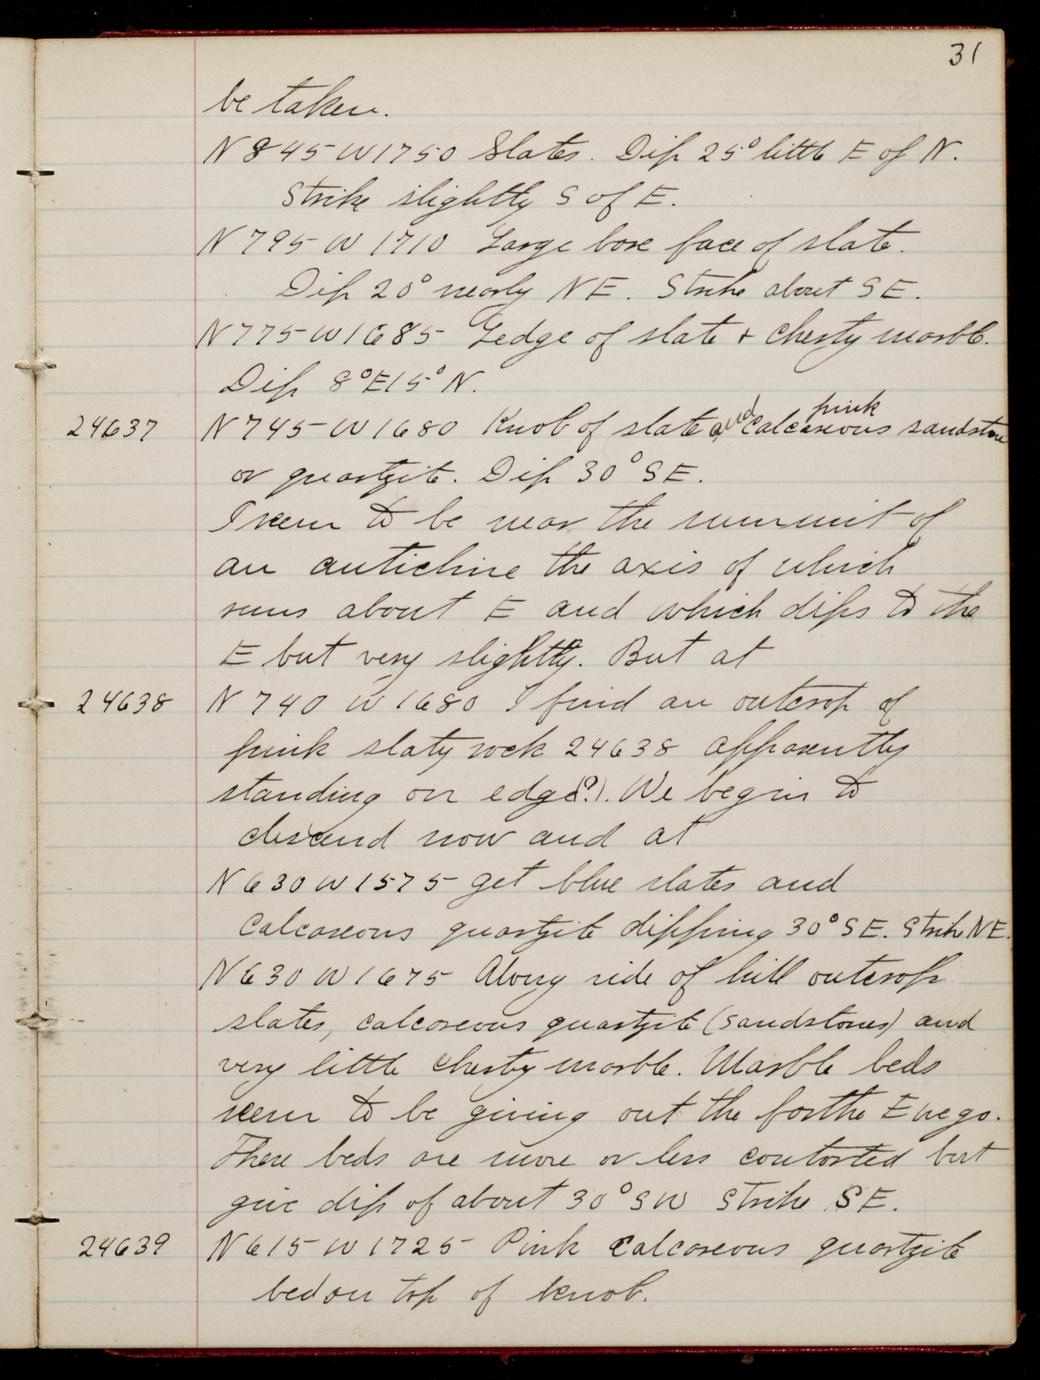 31
be taken.
N 845 W 1750 Slates. Dip 25° little E of N.
Strike slightly S of E.
N 795 W 1710 Large bare face of slate.
Dip 20° nearly NE. Strike about SE.
N 775 W 1685 Ledge of slate + cherty marble.
Dip 8° E 15° N.
24637 N 745 W 1680 Knob of slate and pink calcareous sandstone
or quartzite. Dip 30° SE.
I seem to be near the summit of
an anticline the axis of which
runs about E and which dips to the
E but very slightly. But at
24638 N 740 W 1680 I find an outcrop of
pink slaty rock 24638 apparently
standing on edge(?). We begin to
descend now and at
N 630 W 1575 get blue slates and
calcareous quartzite dipping 30° SE. Strike NE.
N 630 W 1675 Along side of hill outcrop
slates, calcareous quartzite (sandstones) and
very little cherty marble. Marble beds
seem to be giving out the farthe E we go.
These beds are more or less contorted but
give dip of about 30° SW Strike SE.
24639 N 615 W 1725 Pink calcareous quartzite
bed on top of knob.